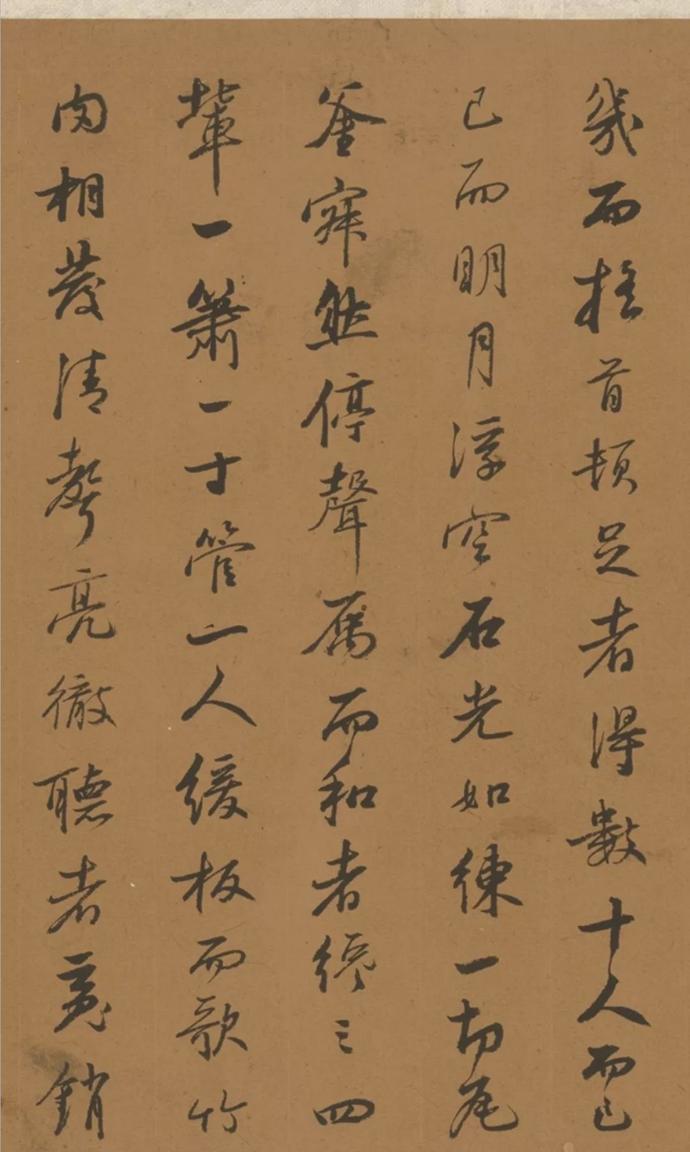 幾而搖首頓足者得數十人而已
已而明月浮空石光如練一切瓦
釜寂然停聲属而和者纔三四
輩一簫一寸管一人緩板而歌竹
肉相發清聲亮徹聽者䰟銷